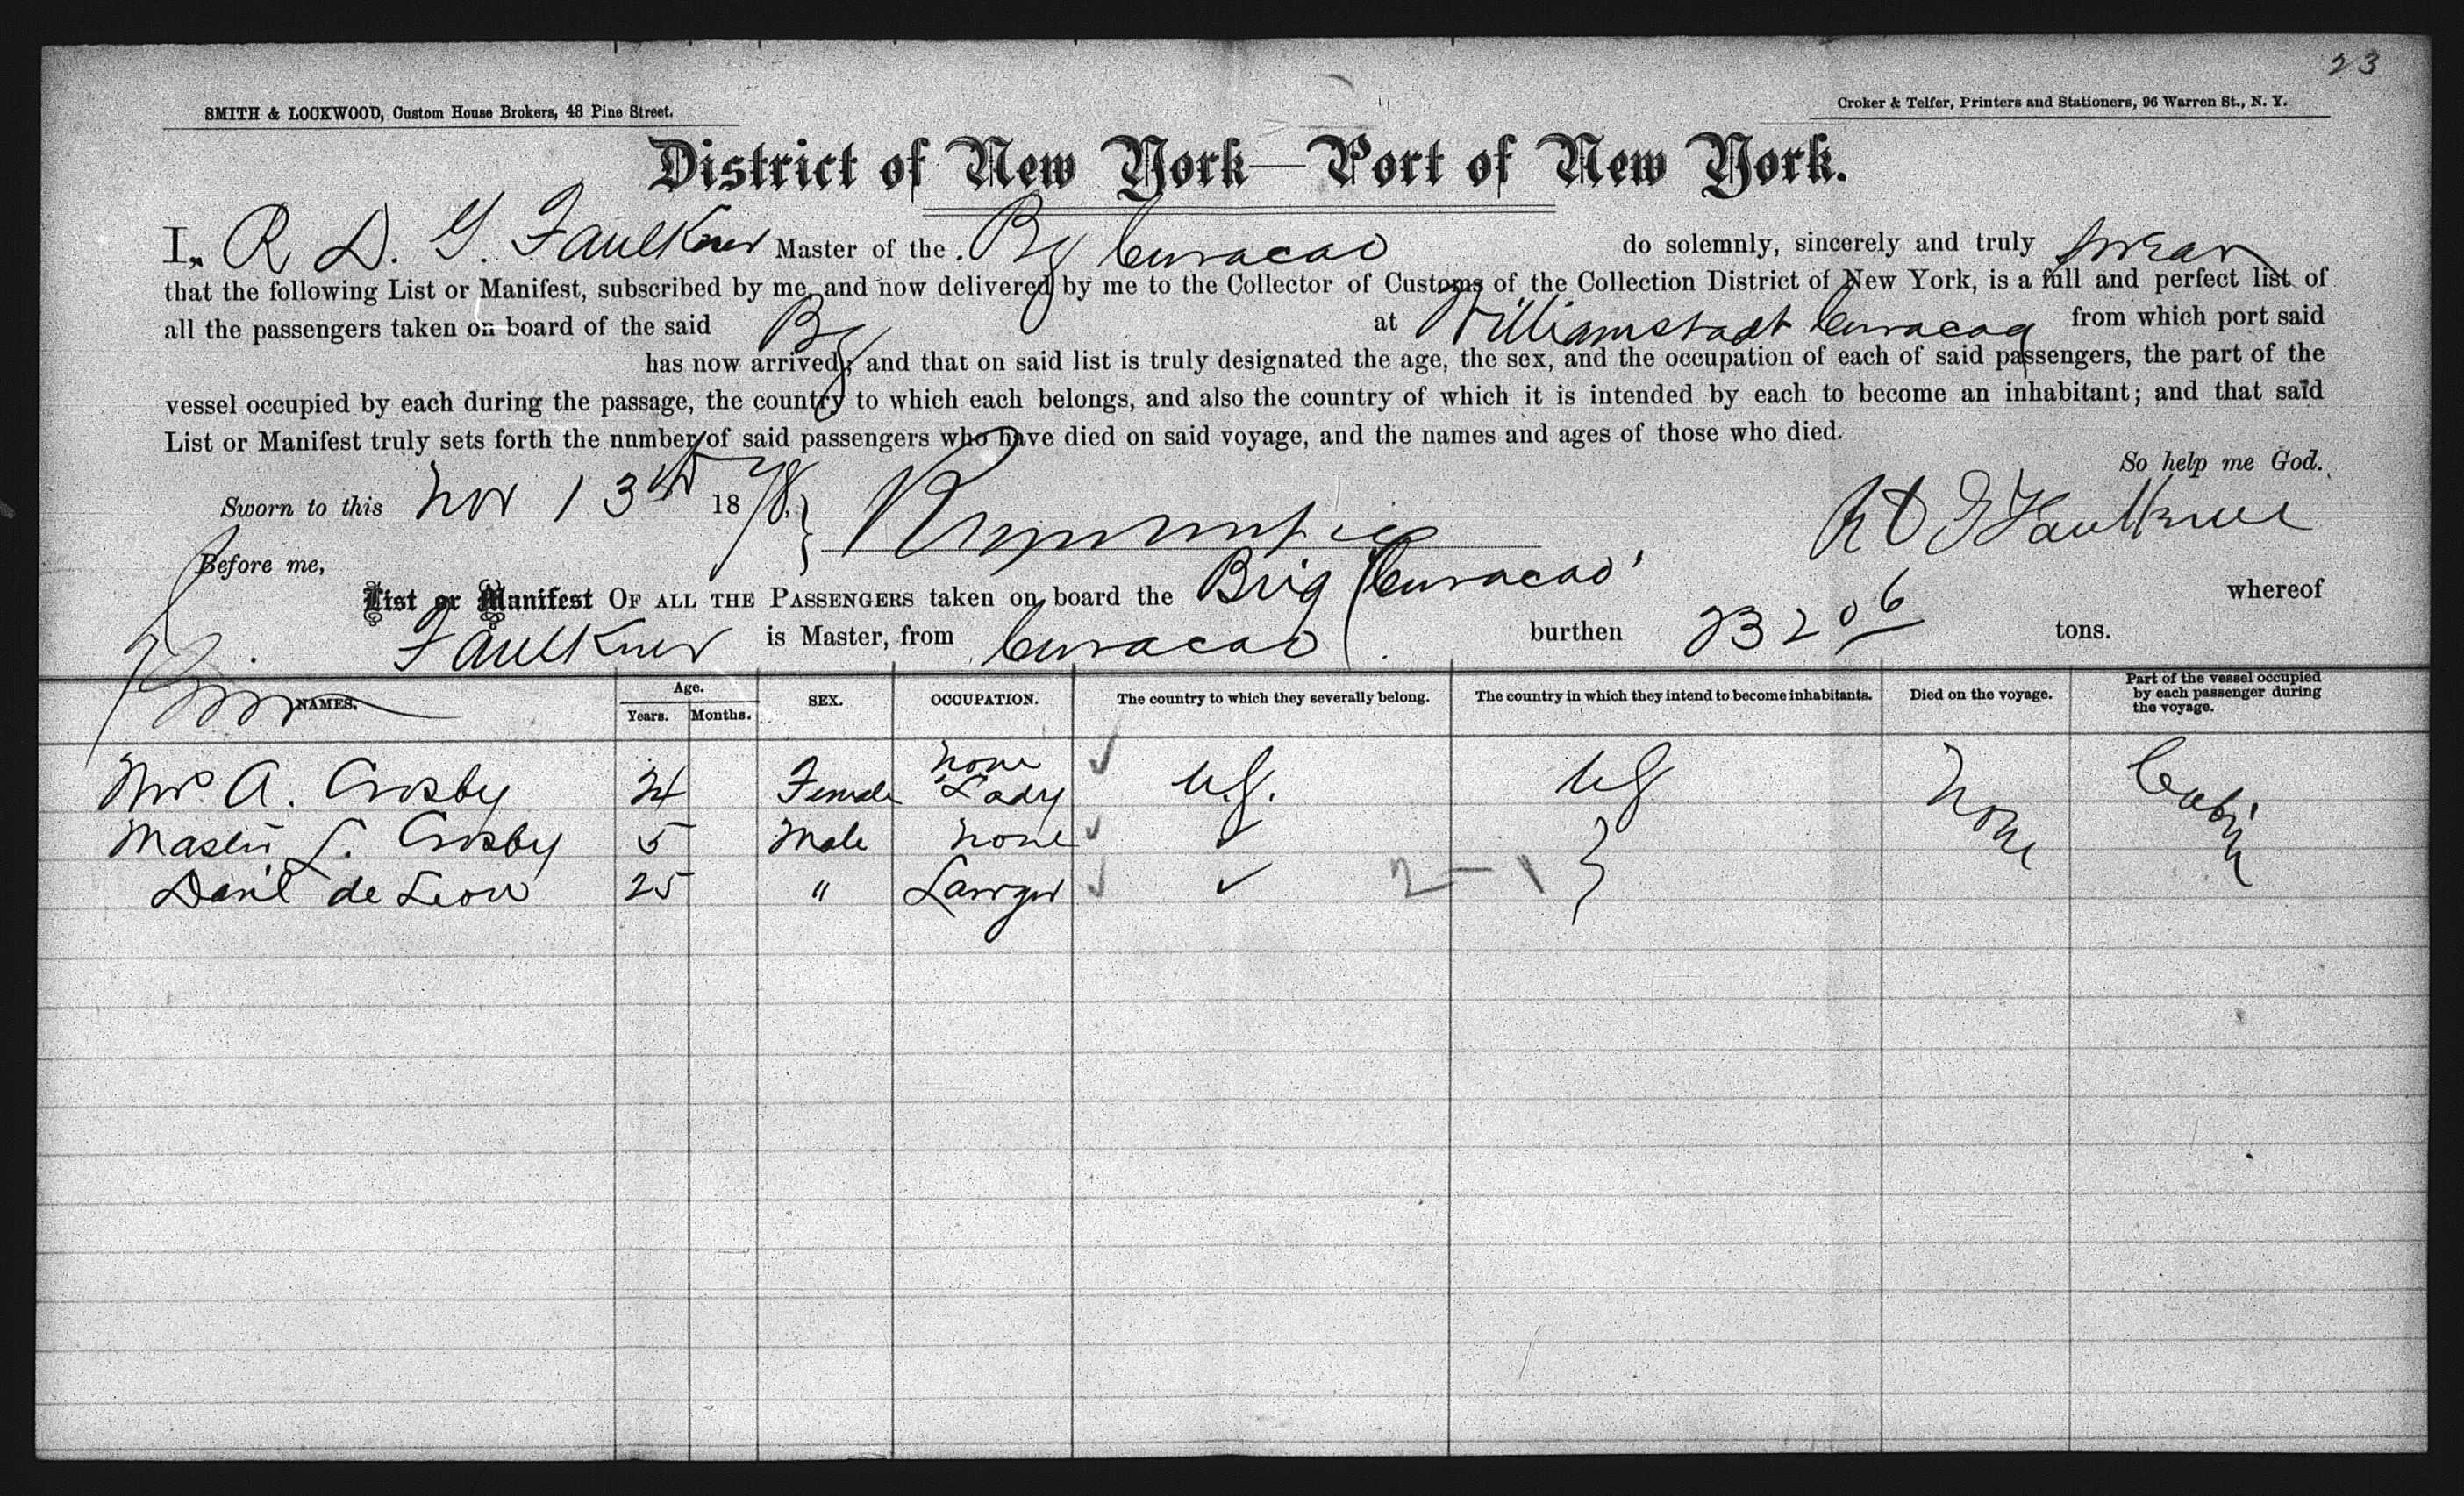 23
SMITH & LOCKWOOD, Custom House Brokers, 48 Pine Street.
Croker & Telfer, Printers and Stationers, 96 Warren St., N. Y.
District of New York—Port of New York.
I, R D. G. Faulkner Master of the Bg Curacao do solemnly, sincerely and truly swear
that the following List or Manifest, subscribed by me, and now delivered by me to the Collector of Customs of the Collection District of New York, is a full and perfect list of
all the passengers taken on board of the said Bg at Williamstadt Curacao from which port said
has now arrived; and that on said list is truly designated the age, the sex, and the occupation of each of said passengers, the part of the
vessel occupied by each during the passage, the country to which each belongs, and also the country of which it is intended by each to become an inhabitant; and that said
List or Manifest truly sets forth the nnmber of said passengers who have died on said voyage, and the names and ages of those who died.
So help me God.
Sworn to this Nov 13th 1878 R D G Faulkner
Before me,
List or Manifest OF ALL THE PASSENGERS taken on board the Brig Curacao whereof
Faulkner is Master, from Curacao burthen 232 06 tons.
NAMES. Age. Years. Months. SEX. OCCUPATION. The country to which they severally belong. The country in which they intend to become inhabitants. Died on the voyage. Part of the vessel occupied by each passenger during the voyage.
Mrs. A. Crosby 24 Female None Lady U.S. US None Cabin
Master L. Crosby 5 Male None ✓
Danl de Leon 25 " Lawyer ✓ 2 — 1